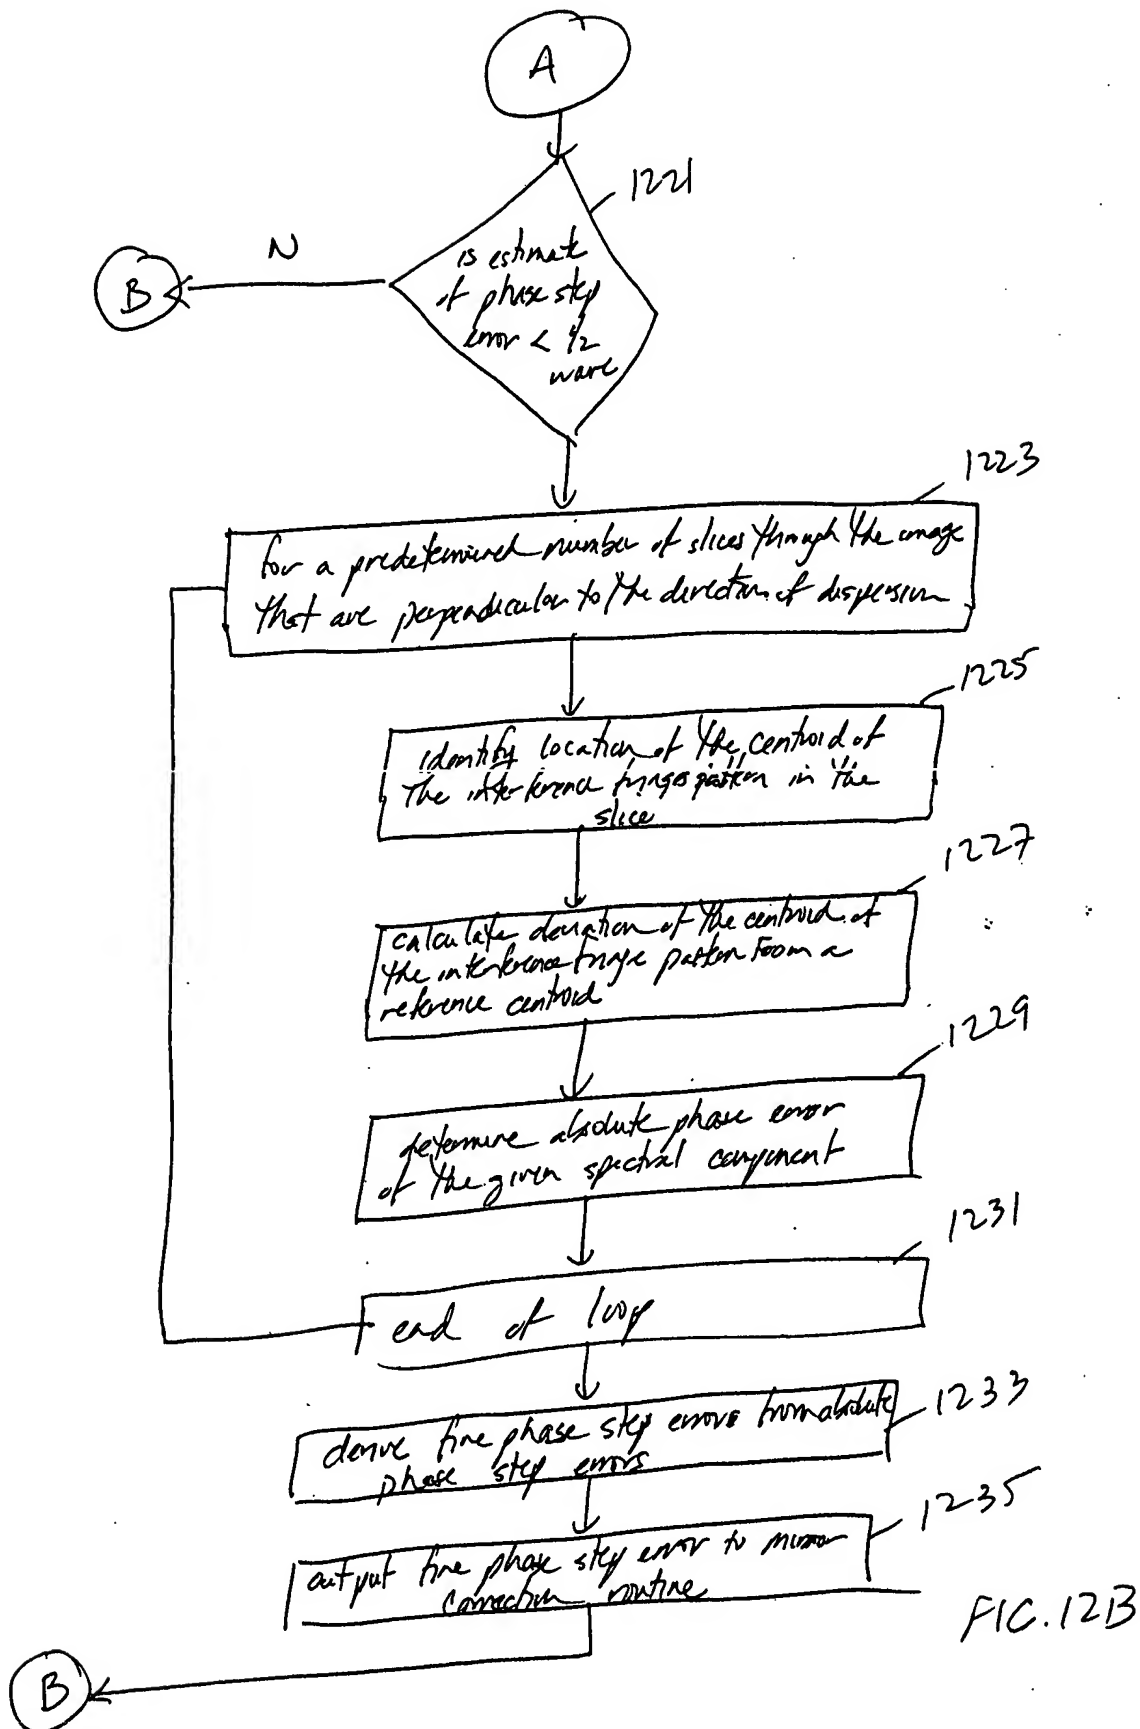 A
1221
N
B
is estimate
of phase step
error < 1/2
wave
1223
for a predetermined number of slices through the image
that are perpendicular to the direction of dispersion
1225
identify location of the centroid of
the interference fringes pattern in the
slice
1227
calculate deviation of the centroid of
the interference fringe pattern from a
reference centroid
1229
determine absolute phase error
of the given spectral component
1231
end of loop
1233
derive fine phase step errors from absolute
phase step errors
1235
output fine phase step error to mirror
correction routine
FIG. 12B
B